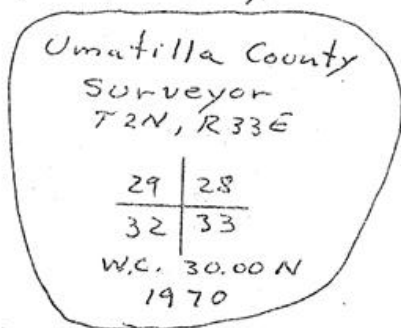 Umatilla County
Surveyor
T2N, R33E
29 28
32 33
W.C. 30.00 N
1970